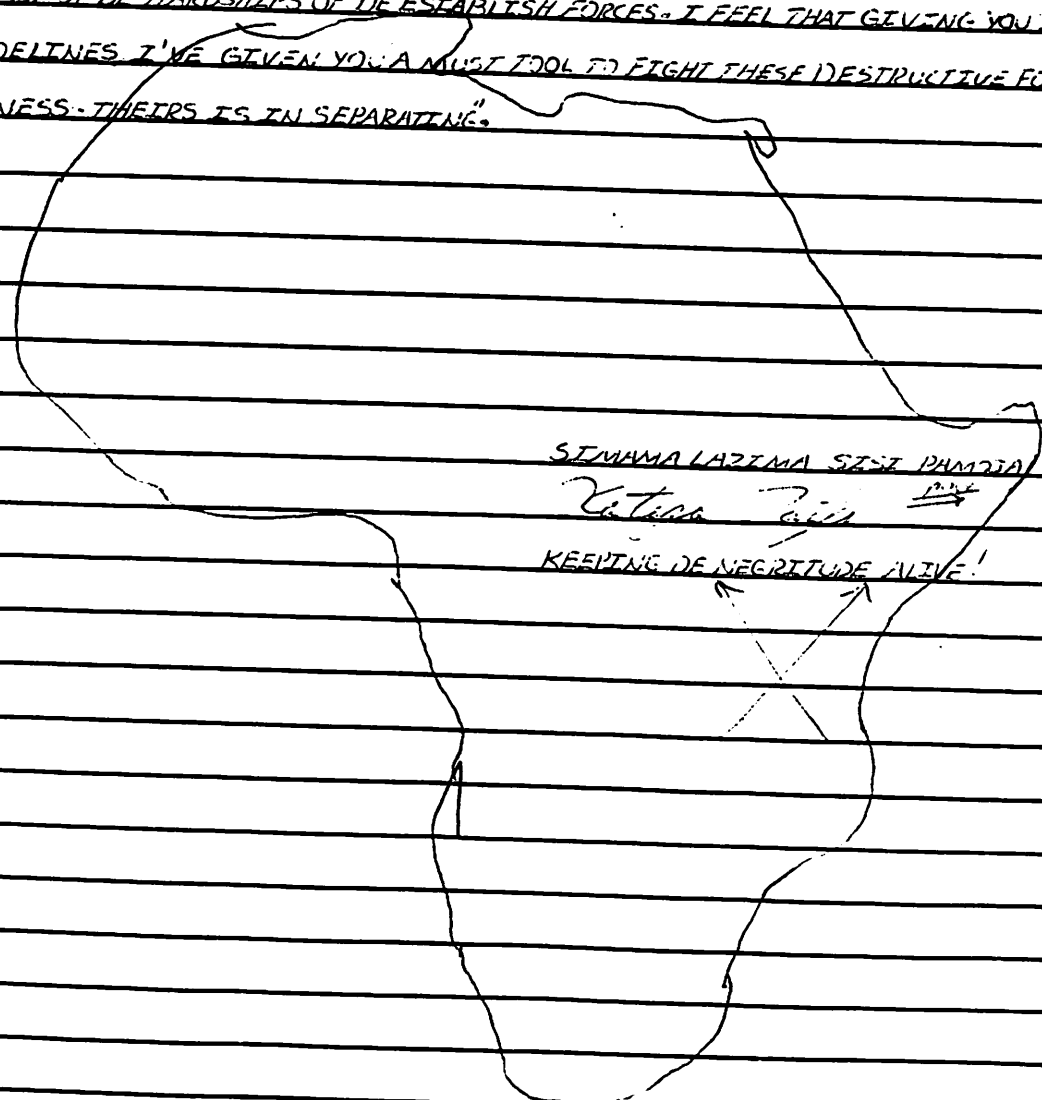 HARDSHIPS OF DE ESTABLISH FORCES. I FEEL THAT GIVING YOU
DELINES I'VE GIVEN YOU A MUST TOOL TO FIGHT THESE DESTRUCTIVE FO
NESS. THEIRS IS IN SEPARATING."
SIMAMA LAZIMA SISI PAMOJA
KEEPING DE NEGRITUDE ALIVE!